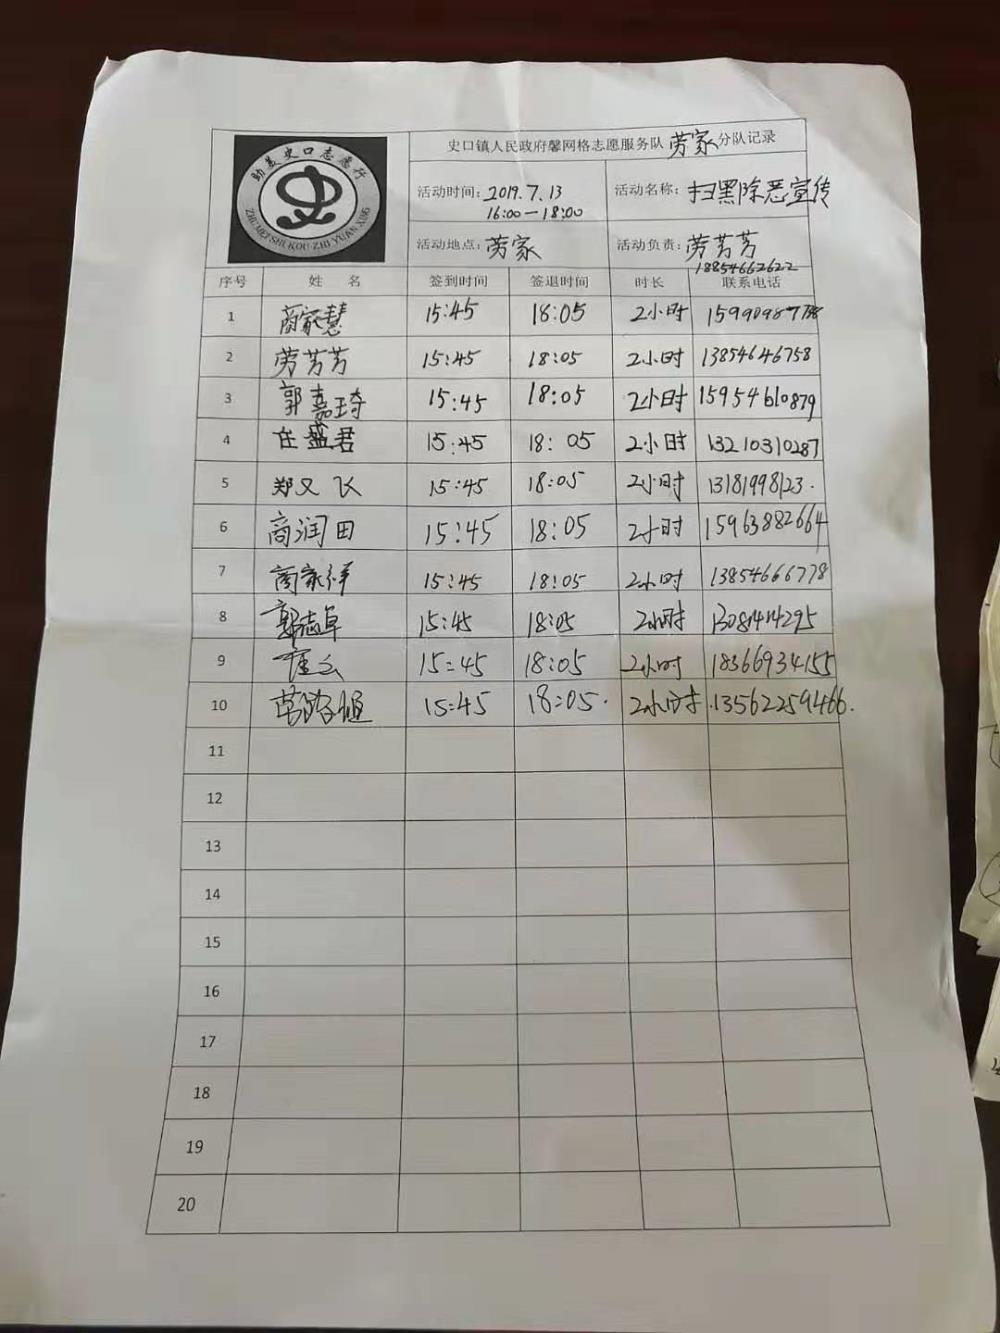 助美史口志愿行
ZHU MEI SHI KOU ZHI YUAN XING
史口镇人民政府馨网格志愿服务队 劳家 分队记录
活动时间: 2019.7.13
16:00—18:00
活动名称: 扫黑除恶宣传
活动地点: 劳家
活动负责: 劳芳芳
18854662622
序号 姓 名 签到时间 签退时间 时长 联系电话
1 商家慧 15:45 18:05 2小时
2 劳芳芳 15:45 18:05 2小时 13854646758
3 郭嘉琦 15:45 18:05 2小时 15954610879
4 任盛君 15:45 18:05 2小时 13210310287
5 郑又飞 15:45 18:05 2小时 13181998123.
6 商润田 15:45 18:05 2小时 15963882664
7 商家祥 15:45 18:05 2小时 13854666778
8 郭志卓 15:45 18:05 2小时 13081414295
9 15:45 18:05 2小时 18366934155
10 15:45 18:05. 2小时 .13562259466.
11
12
13
14
15
16
17
18
19
20